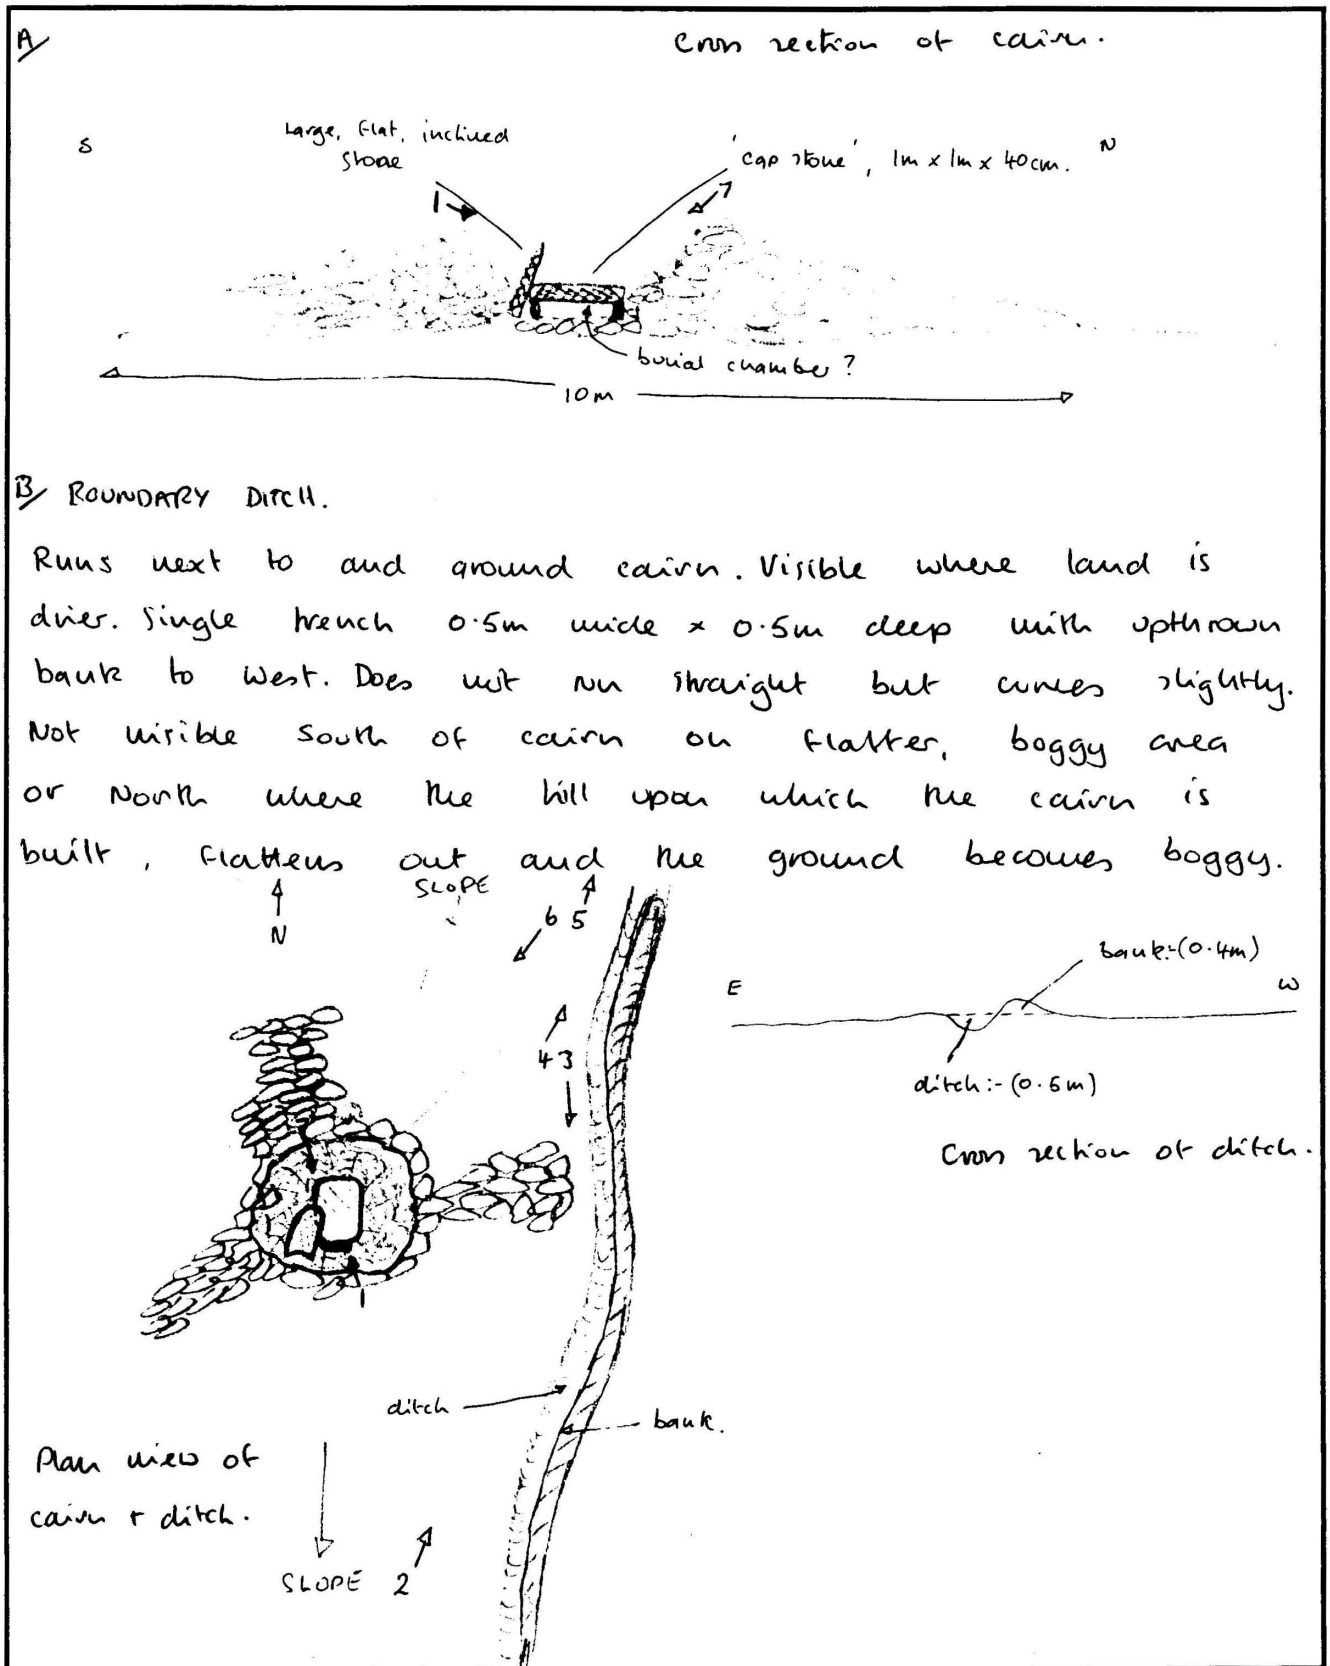 A/
Cross section of cairn.
S
Large, flat, inclined
stone
'cap stone', 1m x 1m x 40cm.
N
1
7
burial chamber ?
10m
B/ BOUNDARY DITCH.
Runs next to and around cairn. Visible where land is
drier. Single trench 0.5m wide x 0.5m deep with upthrown
bank to West. Does not run straight but curves slightly.
Not visible South of cairn on flatter, boggy area
or North where the hill upon which the cairn is
built, flattens out and the ground becomes boggy.
N
SLOPE
6 5
4 3
1
bank:-(0.4m)
E
W
ditch:-(0.5m)
Cross section of ditch.
ditch
bank.
Plan view of
cairn + ditch.
SLOPE 2